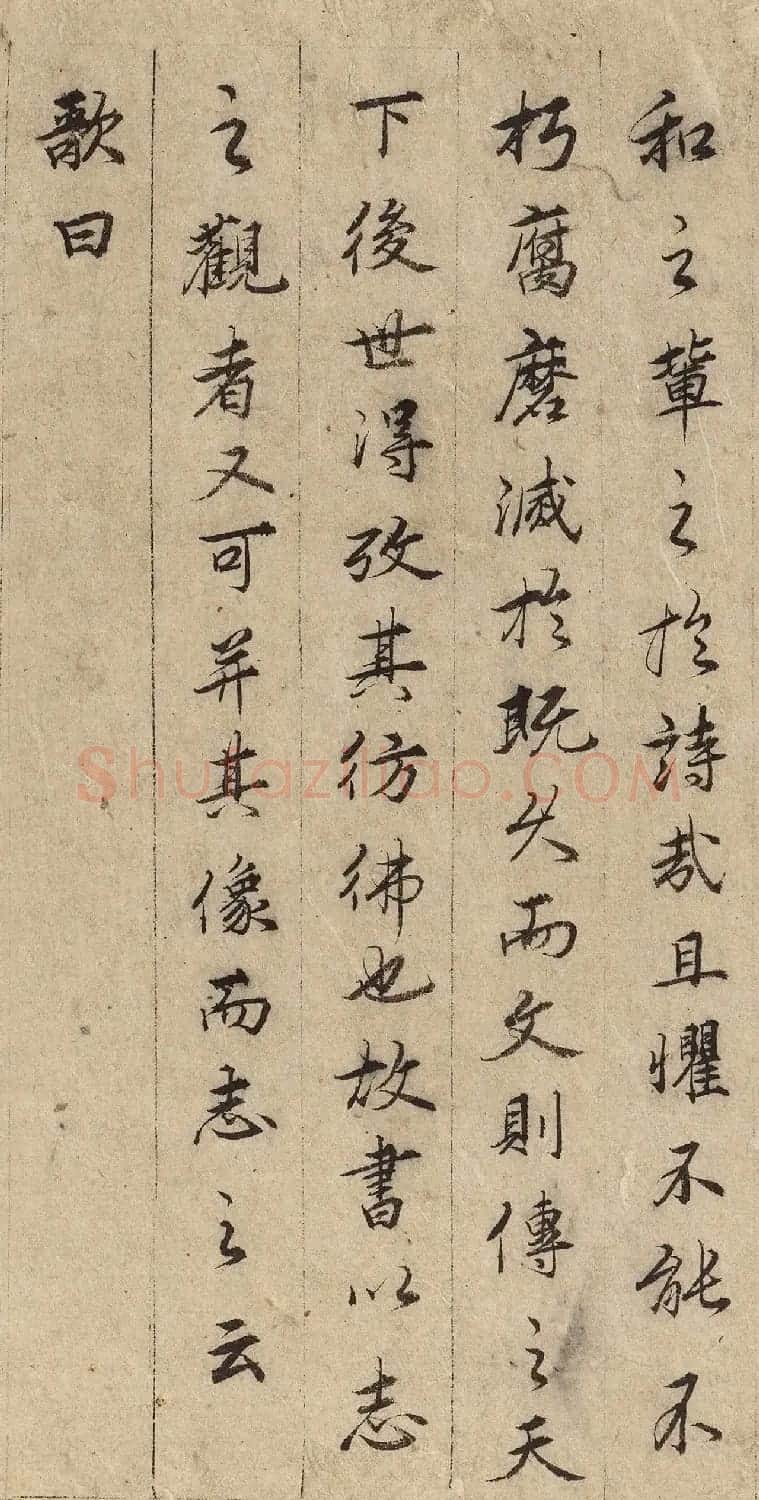 和之輩之於詩哉且懼不能不
朽腐磨滅於既久而文則傳之天
下後世得攷其彷彿也故書以志
之觀者又可并其像而志之云
歌曰
Shufaziliao.COM